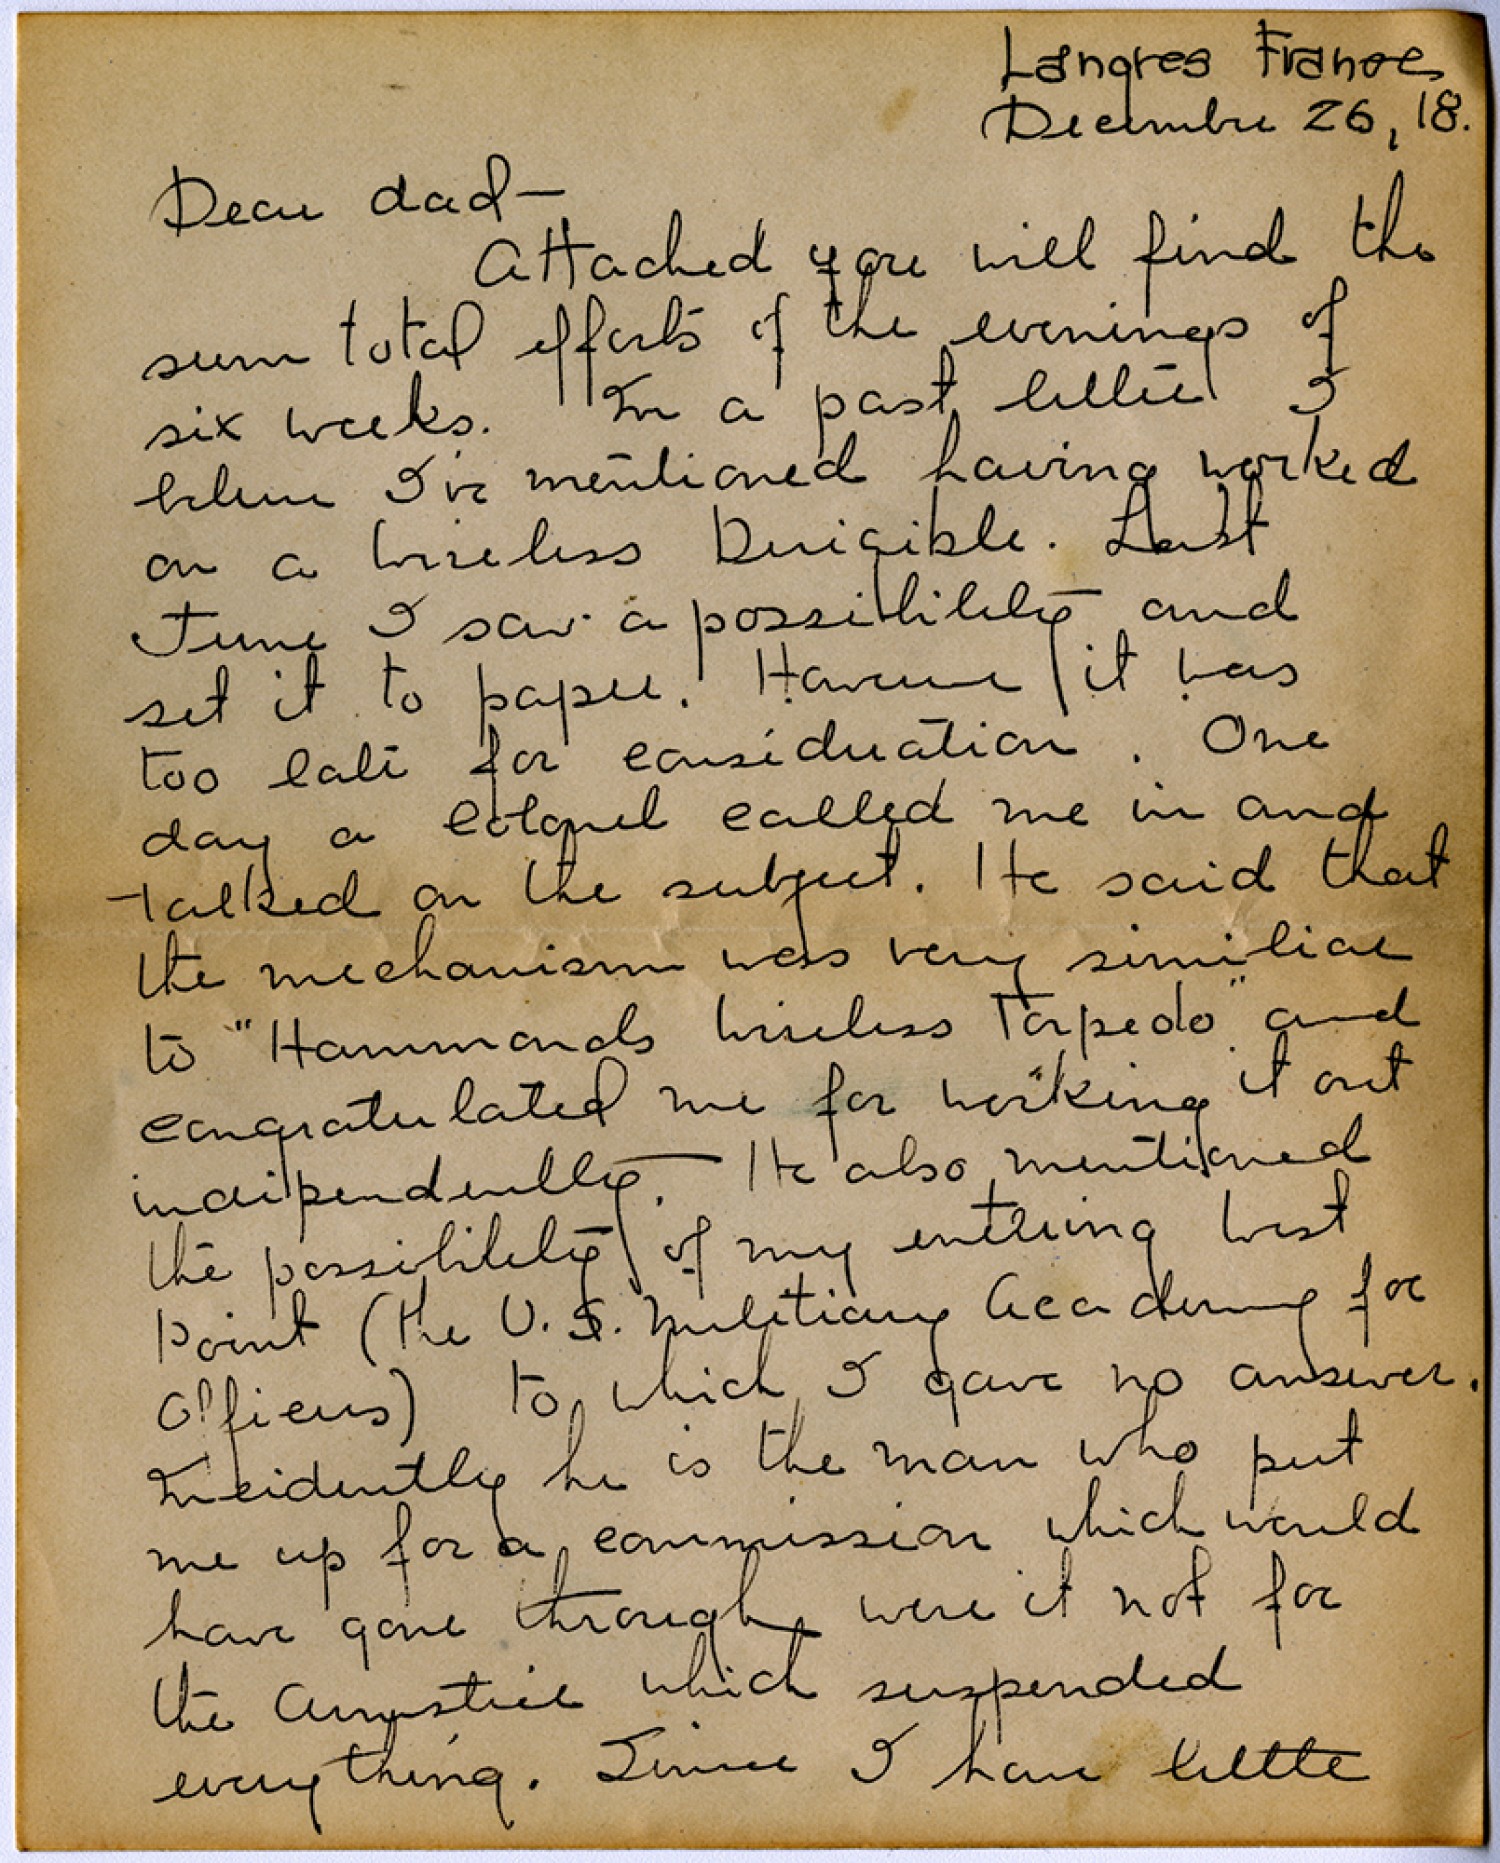 Langres France
December 26, 18.
Dear dad—
Attached you will find the
sum total efforts of the evenings of
six weeks. In a past letter I
beleve I've mentioned having worked
on a Wireless Dirigible. Last
June I saw a possibility and
set it to paper. However it was
too late for consideration. One
day a Colonel called me in and
talked on the subject. He said that
the mechanism was very similiar
to "Hammonds Wireless Torpedo" and
congratulated me for working it out
independently. He also mentioned
the possibility of my entering West
Point (the U.S. Military Academy for
Officers) to which I gave no answer.
Incidently he is the man who put
me up for a commission which would
have gone through were it not for
the Armstice which suspended
everything. Since I have little